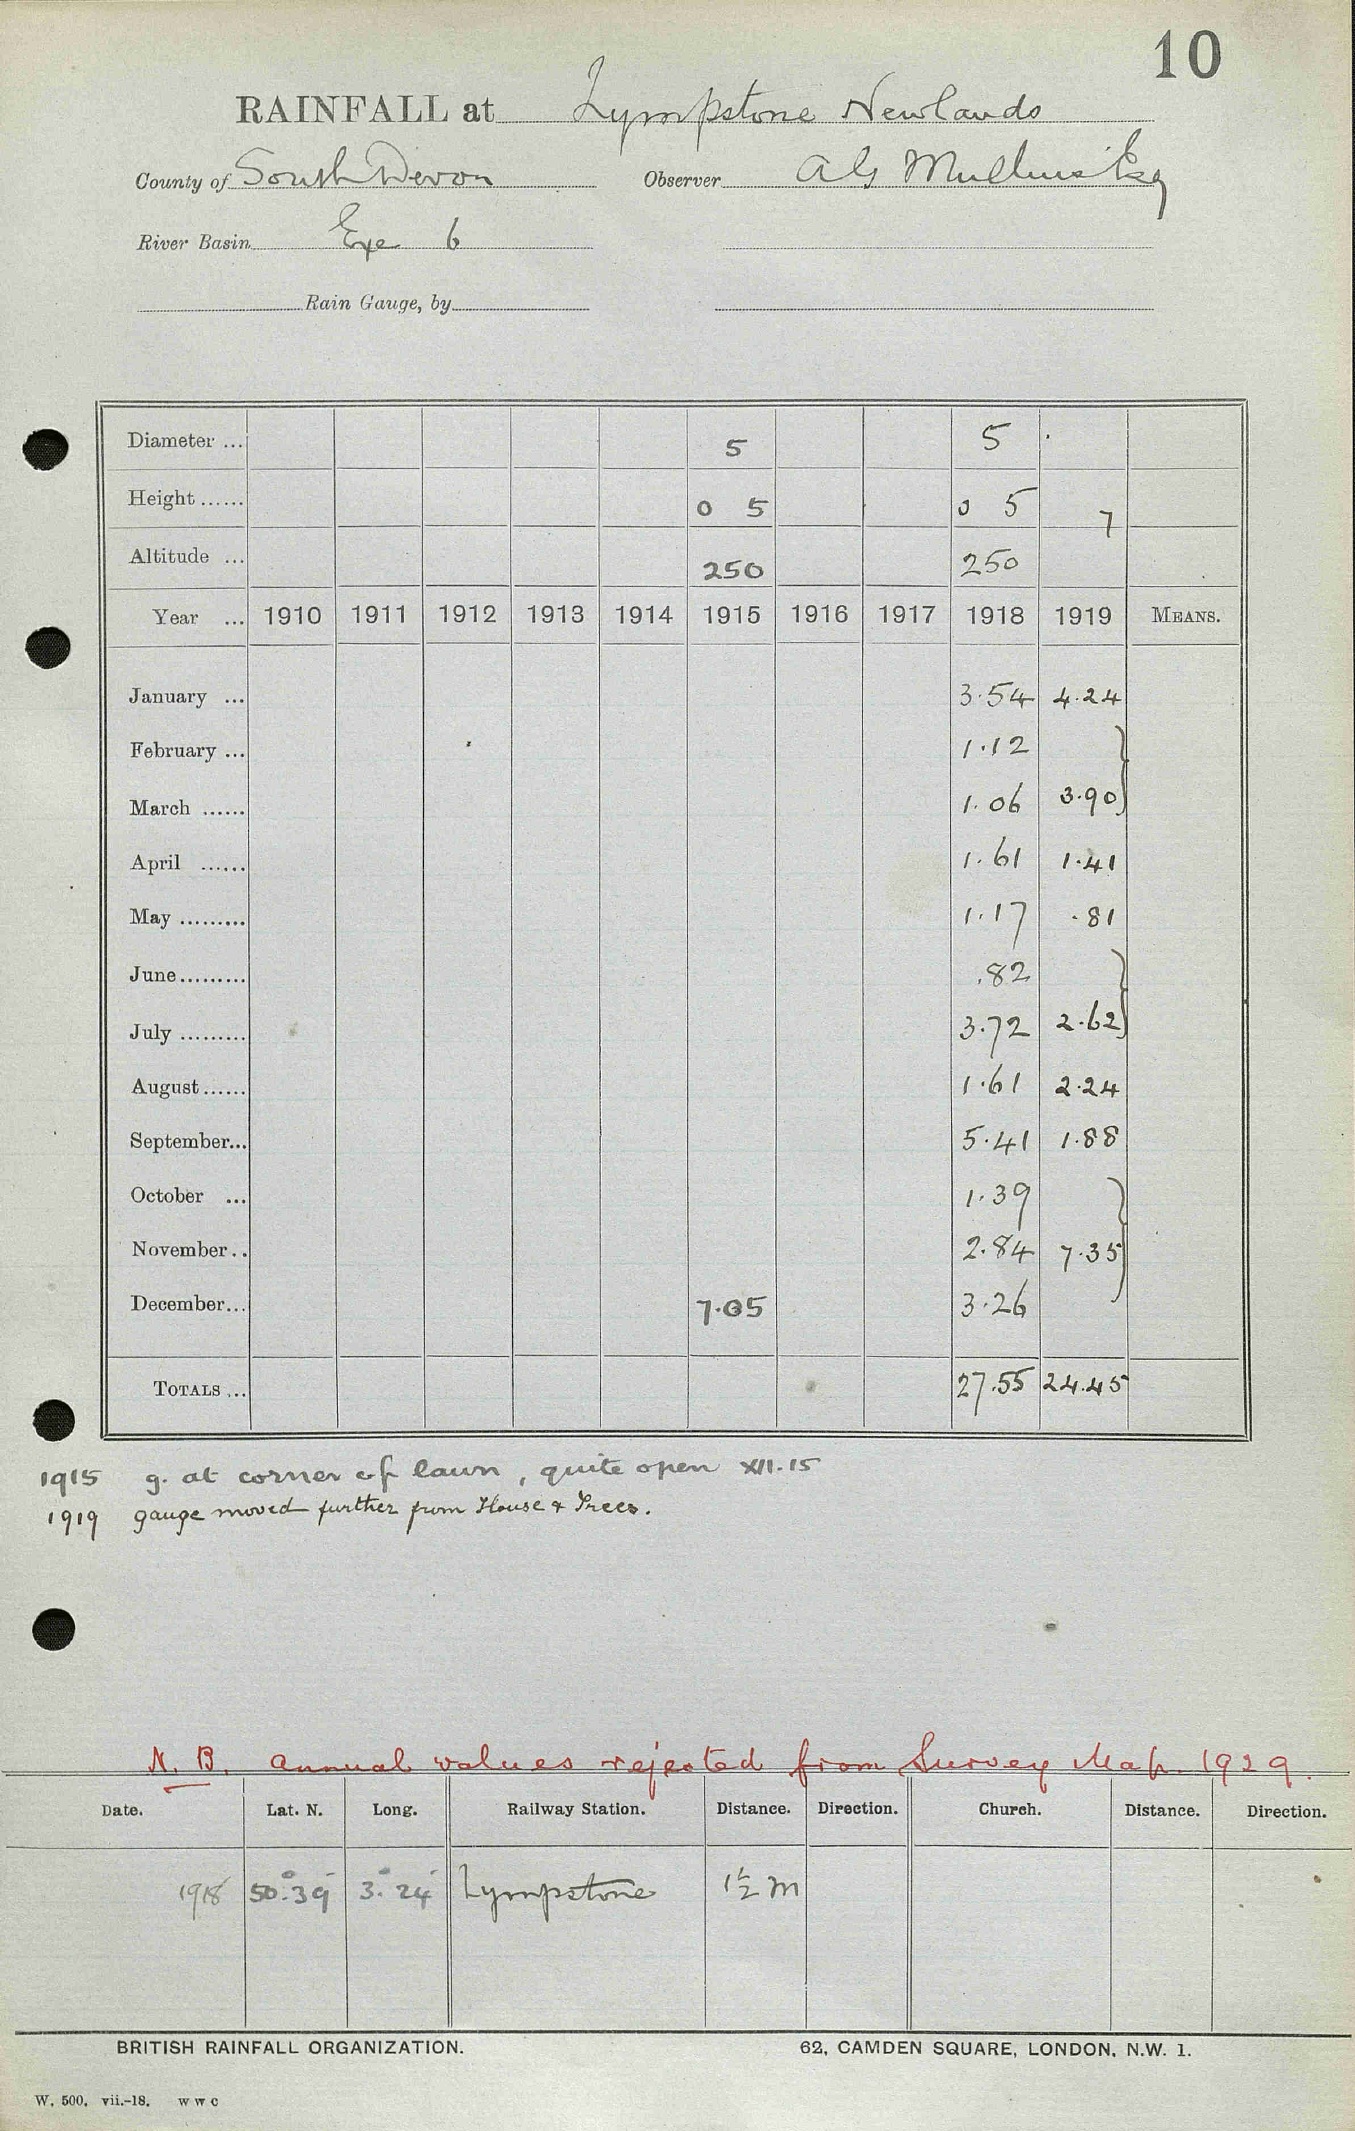 10
RAINFALL at Lympstone Newlands
County of South Devon Observer A G Mullins Esq
River Basin Exe 6
Rain Gauge, by
Diameter ... 5 5
Height ...... 0 5 0 5 7
Altitude ... 250 250
Year ... 1910 1911 1912 1913 1914 1915 1916 1917 1918 1919 MEANS.
January ... 3.54 4.24
February ... 1.12 }
March ...... 1.06 3.90
April ...... 1.61 1.41
May ......... 1.17 .81
June ......... .82 }
July ......... 3.72 2.62
August ...... 1.61 2.24
September... 5.41 1.88
October ... 1.39 }
November .. 2.84 7.35
December... 7.05 3.26
TOTALS ... 27.55 24.45
1915 g. at corner of lawn, quite open XII.15
1919 gauge moved further from House & Trees.
N.B. Annual values rejected from Survey Map 1929.
Date. Lat. N. Long. Railway Station. Distance. Direction. Church. Distance. Direction.
1918 50°.39' 3°.24' Lympstone 1½ m
BRITISH RAINFALL ORGANIZATION. 62, CAMDEN SQUARE, LONDON, N.W. 1.
W. 500. vii.-18. w w c